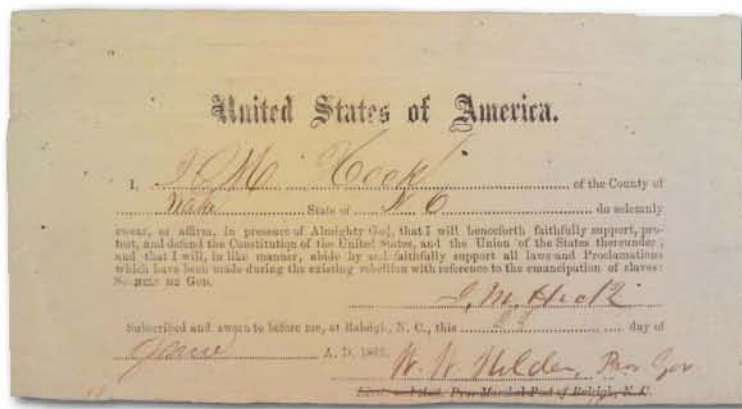 United States of America.
I, J M Heck of the County of
Wake State of N C do solemnly
swear, or affirm, in presence of Almighty God, that I will henceforth faithfully support, pro-
tect, and defend the Constitution of the United States, and the Union of the States thereunder;
and that I will, in like manner, abide by and faithfully support all laws and Proclamations
which have been made during the existing rebellion with reference to the emancipation of slaves:
So HELP ME GOD.
J. M. Heck
Subscribed and sworn to before me, at Raleigh, N. C., this day of
June A. D. 1865.
W. W. Holden, Prov. Gov
Prov. Marshal Post of Raleigh, N. C.